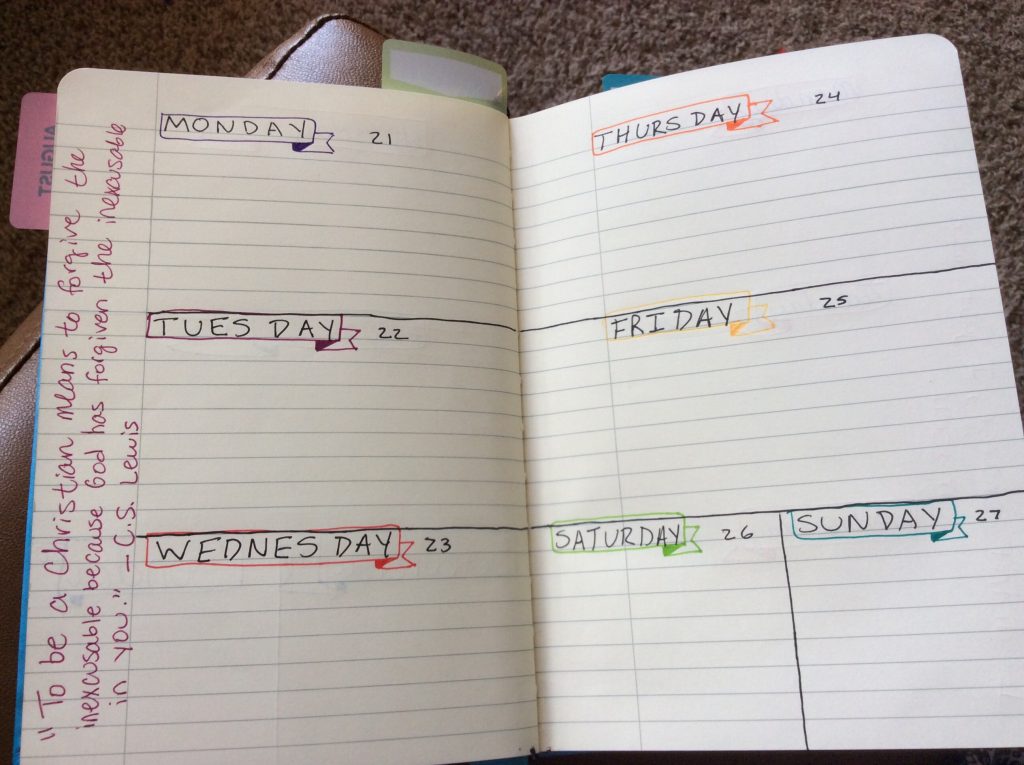 AUGUST
"To be a Christian means to forgive the
inexcusable because God has forgiven the inexcusable
in you." — C.S. Lewis
MONDAY 21
TUESDAY 22
WEDNESDAY 23
THURSDAY 24
FRIDAY 25
SATURDAY 26
SUNDAY 27